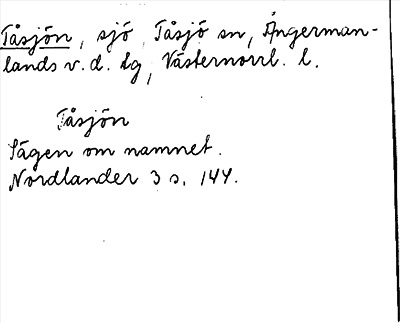 Tåsjön, sjö Tåsjö sn, Ångerman-
lands v. d. tg, Västernorrl. l.
Tåsjön
Sägen om namnet.
Nordlander 3 s. 144.